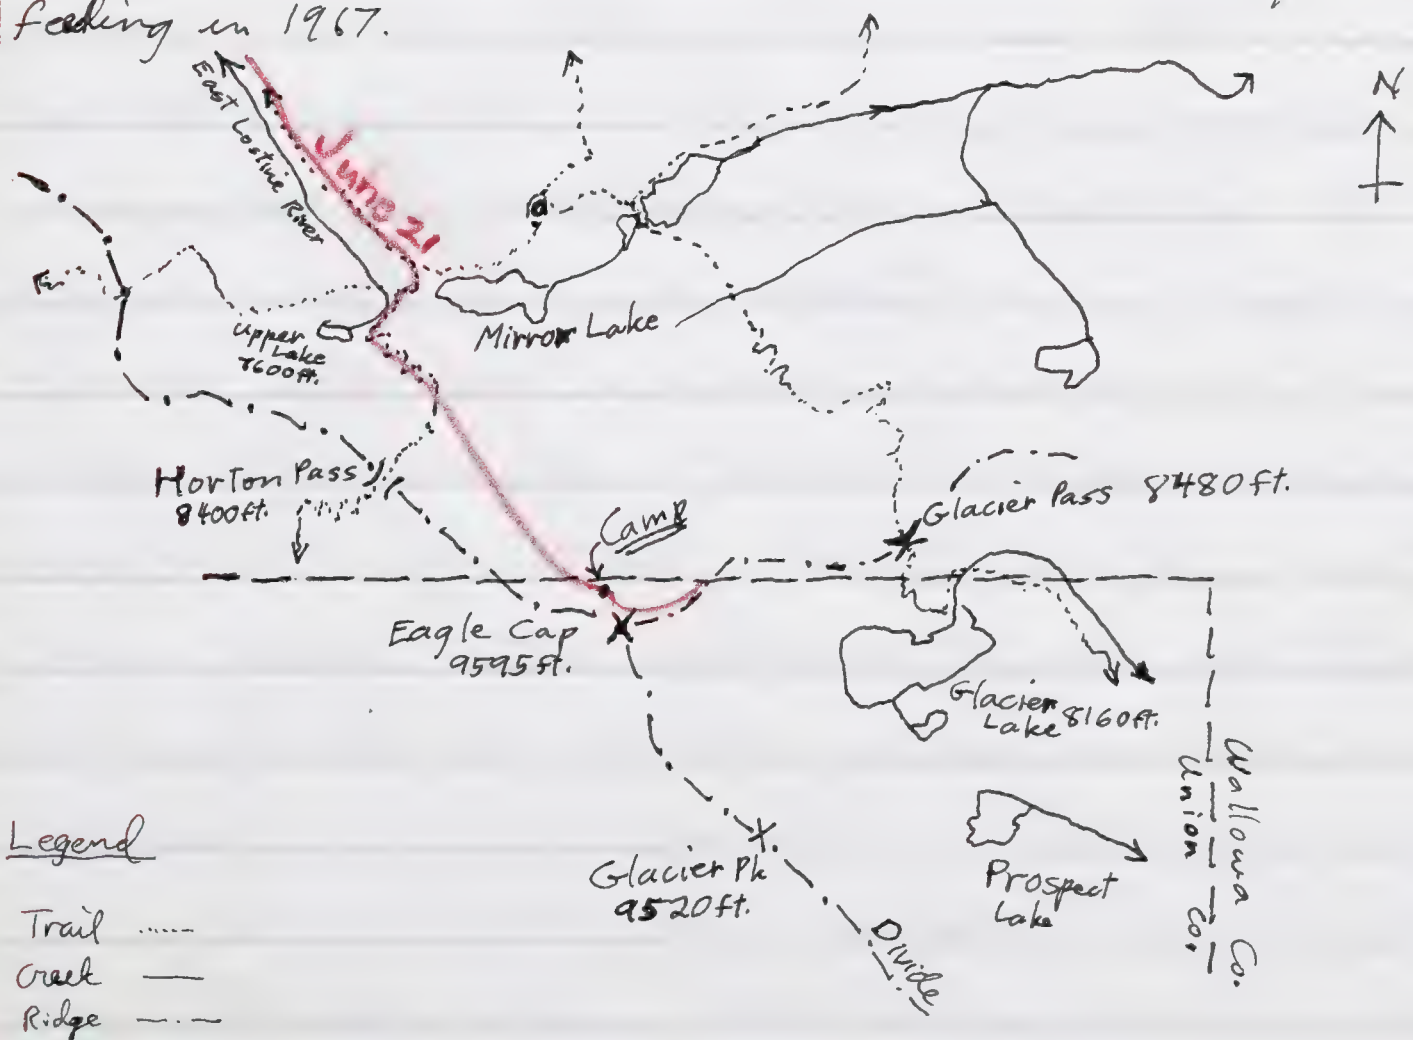 feeding in 1967.
N
East Lostine River
June 21
Upper
Lake
7600ft.
Mirror Lake
Horton Pass
8400ft.
Glacier Pass 8480ft.
Camp
Eagle Cap
9595ft.
Glacier
Lake 8160ft.
Wallowa Co.
Union Co.
Glacier Pk
9520ft.
Prospect
Lake
Divide
Legend
Trail
Creek
Ridge